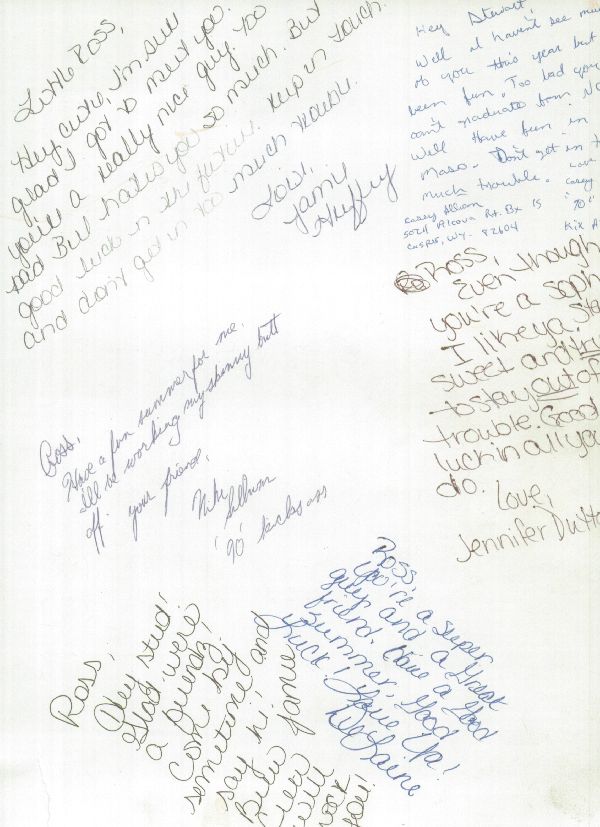 Little Ross,
Hey cutie, I'm sure
glad I got to meet you.
you're a really nice guy. Too
bad Buh hates you so much. But
good luck in the future. Keep in touch.
and don't get in too much trouble.
Love,
Jamie
Huffey
Hey Stewart,
Well I haven't see mu
of you this year but
been fun. Too bad you
can't graduate from N
Well Have fun in
Maso. Don't get in t
much trouble.
Love
Casey
"90"
Casey Allum
5024 Alcova Rt. Bx 15
Casper, Wy. 82604
Kix A
Ross,
Even though
you're a soph
I like ya. Sta
sweet and try
to stay out of
trouble. Good
luck in all you
do.
Love,
Jennifer Dutt
Ross,
Have a fun summer for me,
I'll be working my skinny butt
off.
your friend,
Mike
Allum
'90' kicks ass
Ross,
You're a super
guy and a Great
friend. Have a Good
Summer, Good
Luck! Love Ya!
DeLaine
Ross,
Hey stud!
Glad we're
a friend,
Come by
sometime and
say hi,
Jamie
will
work
you!